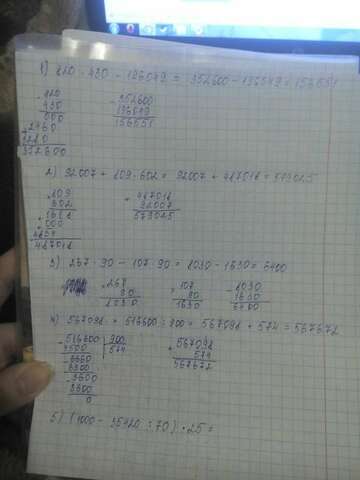 1) 820 · 430 - 196049 = 352600 - 196049 = 156551
820
430
000
2460
3280
352600
352600
196049
156551
2) 92007 + 809 · 602 = 92007 + 487018 = 579025
809
602
1618
000
4854
487018
487018
92007
579025
3) 267 · 90 - 107 · 90 = 8030 - 1630 = 6400
90
8030
107
90
1630
8030
1630
6400
4) 567098 + 516600 : 900 = 567098 + 574 = 567672
516600 900
4500 574
6660
6300
3600
3600
0
567098
574
567672
5) (1000 - 35420 : 70) · 25 =